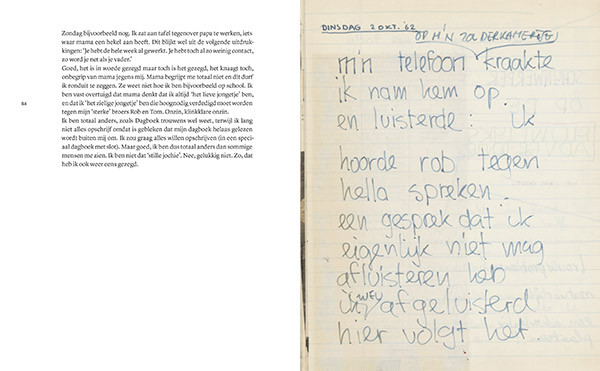 Zondag bijvoorbeeld nog. Ik zat aan tafel tegenover papa te werken, iets
waar mama een hekel aan heeft. Dit blijkt wel uit de volgende uitdruk-
kingen: ‘Je hebt de hele week al gewerkt. Je hebt toch al zo weinig contact,
zo word je net als je vader.’
Goed, het is in woede gezegd maar toch is het gezegd, het knaagt toch,
onbegrip van mama jegens mij. Mama begrijpt me totaal niet en dit durf
ik ronduit te zeggen. Ze weet niet hoe ik ben bijvoorbeeld op school. Ik
ben vast overtuigd dat mama denkt dat ik altijd ‘het lieve jongetje’ ben,
en dat ik ‘het zielige jongetje’ ben die hoognodig verdedigd moet worden
tegen mijn ‘sterke’ broers Rob en Tom. Onzin, klinkklare onzin.
Ik ben totaal anders, zoals Dagboek trouwens wel weet, terwijl ik lang
niet alles opschrijf omdat is gebleken dat mijn dagboek helaas gelezen
wordt buiten mij om. Ik zou graag alles willen opschrijven (in een speci-
aal dagboek met slot). Maar goed, ik ben dus totaal anders dan sommige
mensen me zien. Ik ben niet dat ‘stille jochie’. Nee, gelukkig niet. Zo, dat
heb ik ook weer eens gezegd.
DINSDAG 2 OKT. '62
OP M'N
m'n telefoon kraakte
ik nam hem op.
en luisterde: ik
hoorde rob tegen
hella spreken.
een gesprek dat ik
eigenlijk niet mag
afluisteren heb
ik WEL afgeluisterd
hier volgt het.